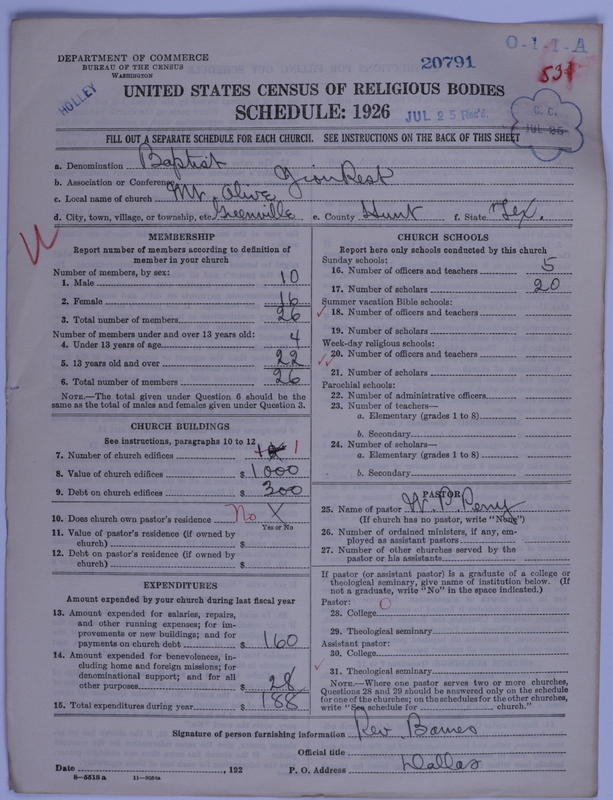 DEPARTMENT OF COMMERCE
BUREAU OF THE CENSUS
WASHINGTON
HOLLEY
20791
O-1-1-A
531
UNITED STATES CENSUS OF RELIGIOUS BODIES
SCHEDULE: 1926
JUL 25 Rec'd.
C. C.
JUL 26
FILL OUT A SEPARATE SCHEDULE FOR EACH CHURCH. SEE INSTRUCTIONS ON THE BACK OF THIS SHEET
a. Denomination Baptist
b. Association or Conference Zion Rest
c. Local name of church Mt. Olive
d. City, town, village, or township, etc. Greenville e. County Hunt f. State Tex.
MEMBERSHIP
Report number of members according to definition of
member in your church
Number of members, by sex:
1. Male 10
2. Female 16
3. Total number of members 26
Number of members under and over 13 years old:
4. Under 13 years of age 4
5. 13 years old and over 22
6. Total number of members 26
NOTE.—The total given under Question 6 should be the
same as the total of males and females given under Question 3.
CHURCH BUILDINGS
See instructions, paragraphs 10 to 12
7. Number of church edifices 1
8. Value of church edifices $ 1000
9. Debt on church edifices $ 300
10. Does church own pastor's residence No X
Yes or No
11. Value of pastor's residence (if owned by
church) $
12. Debt on pastor's residence (if owned by
church) $
EXPENDITURES
Amount expended by your church during last fiscal year
13. Amount expended for salaries, repairs,
and other running expenses; for im-
provements or new buildings; and for
payments on church debt $ 160
14. Amount expended for benevolences, in-
cluding home and foreign missions; for
denominational support; and for all
other purposes $ 28
15. Total expenditures during year $ 188
CHURCH SCHOOLS
Report here only schools conducted by this church
Sunday schools:
16. Number of officers and teachers 5
17. Number of scholars 20
Summer vacation Bible schools:
18. Number of officers and teachers
19. Number of scholars
Week-day religious schools:
20. Number of officers and teachers
21. Number of scholars
Parochial schools:
22. Number of administrative officers
23. Number of teachers—
a. Elementary (grades 1 to 8)
b. Secondary
24. Number of scholars—
a. Elementary (grades 1 to 8)
b. Secondary
PASTOR
25. Name of pastor W. P. Perry
(If church has no pastor, write "None")
26. Number of ordained ministers, if any, em-
ployed as assistant pastors
27. Number of other churches served by the
pastor or his assistants
If pastor (or assistant pastor) is a graduate of a college or
theological seminary, give name of institution below. (If
not a graduate, write "No" in the space indicated.)
Pastor:
28. College
29. Theological seminary
Assistant pastor:
30. College
31. Theological seminary
NOTE.—Where one pastor serves two or more churches,
Questions 28 and 29 should be answered only on the schedule
for one of the churches; on the schedules for the other churches,
write "See schedule for church."
Signature of person furnishing information Rev Barnes
Official title
Date , 192 P. O. Address Dallas
8—5518 a 11—9054a